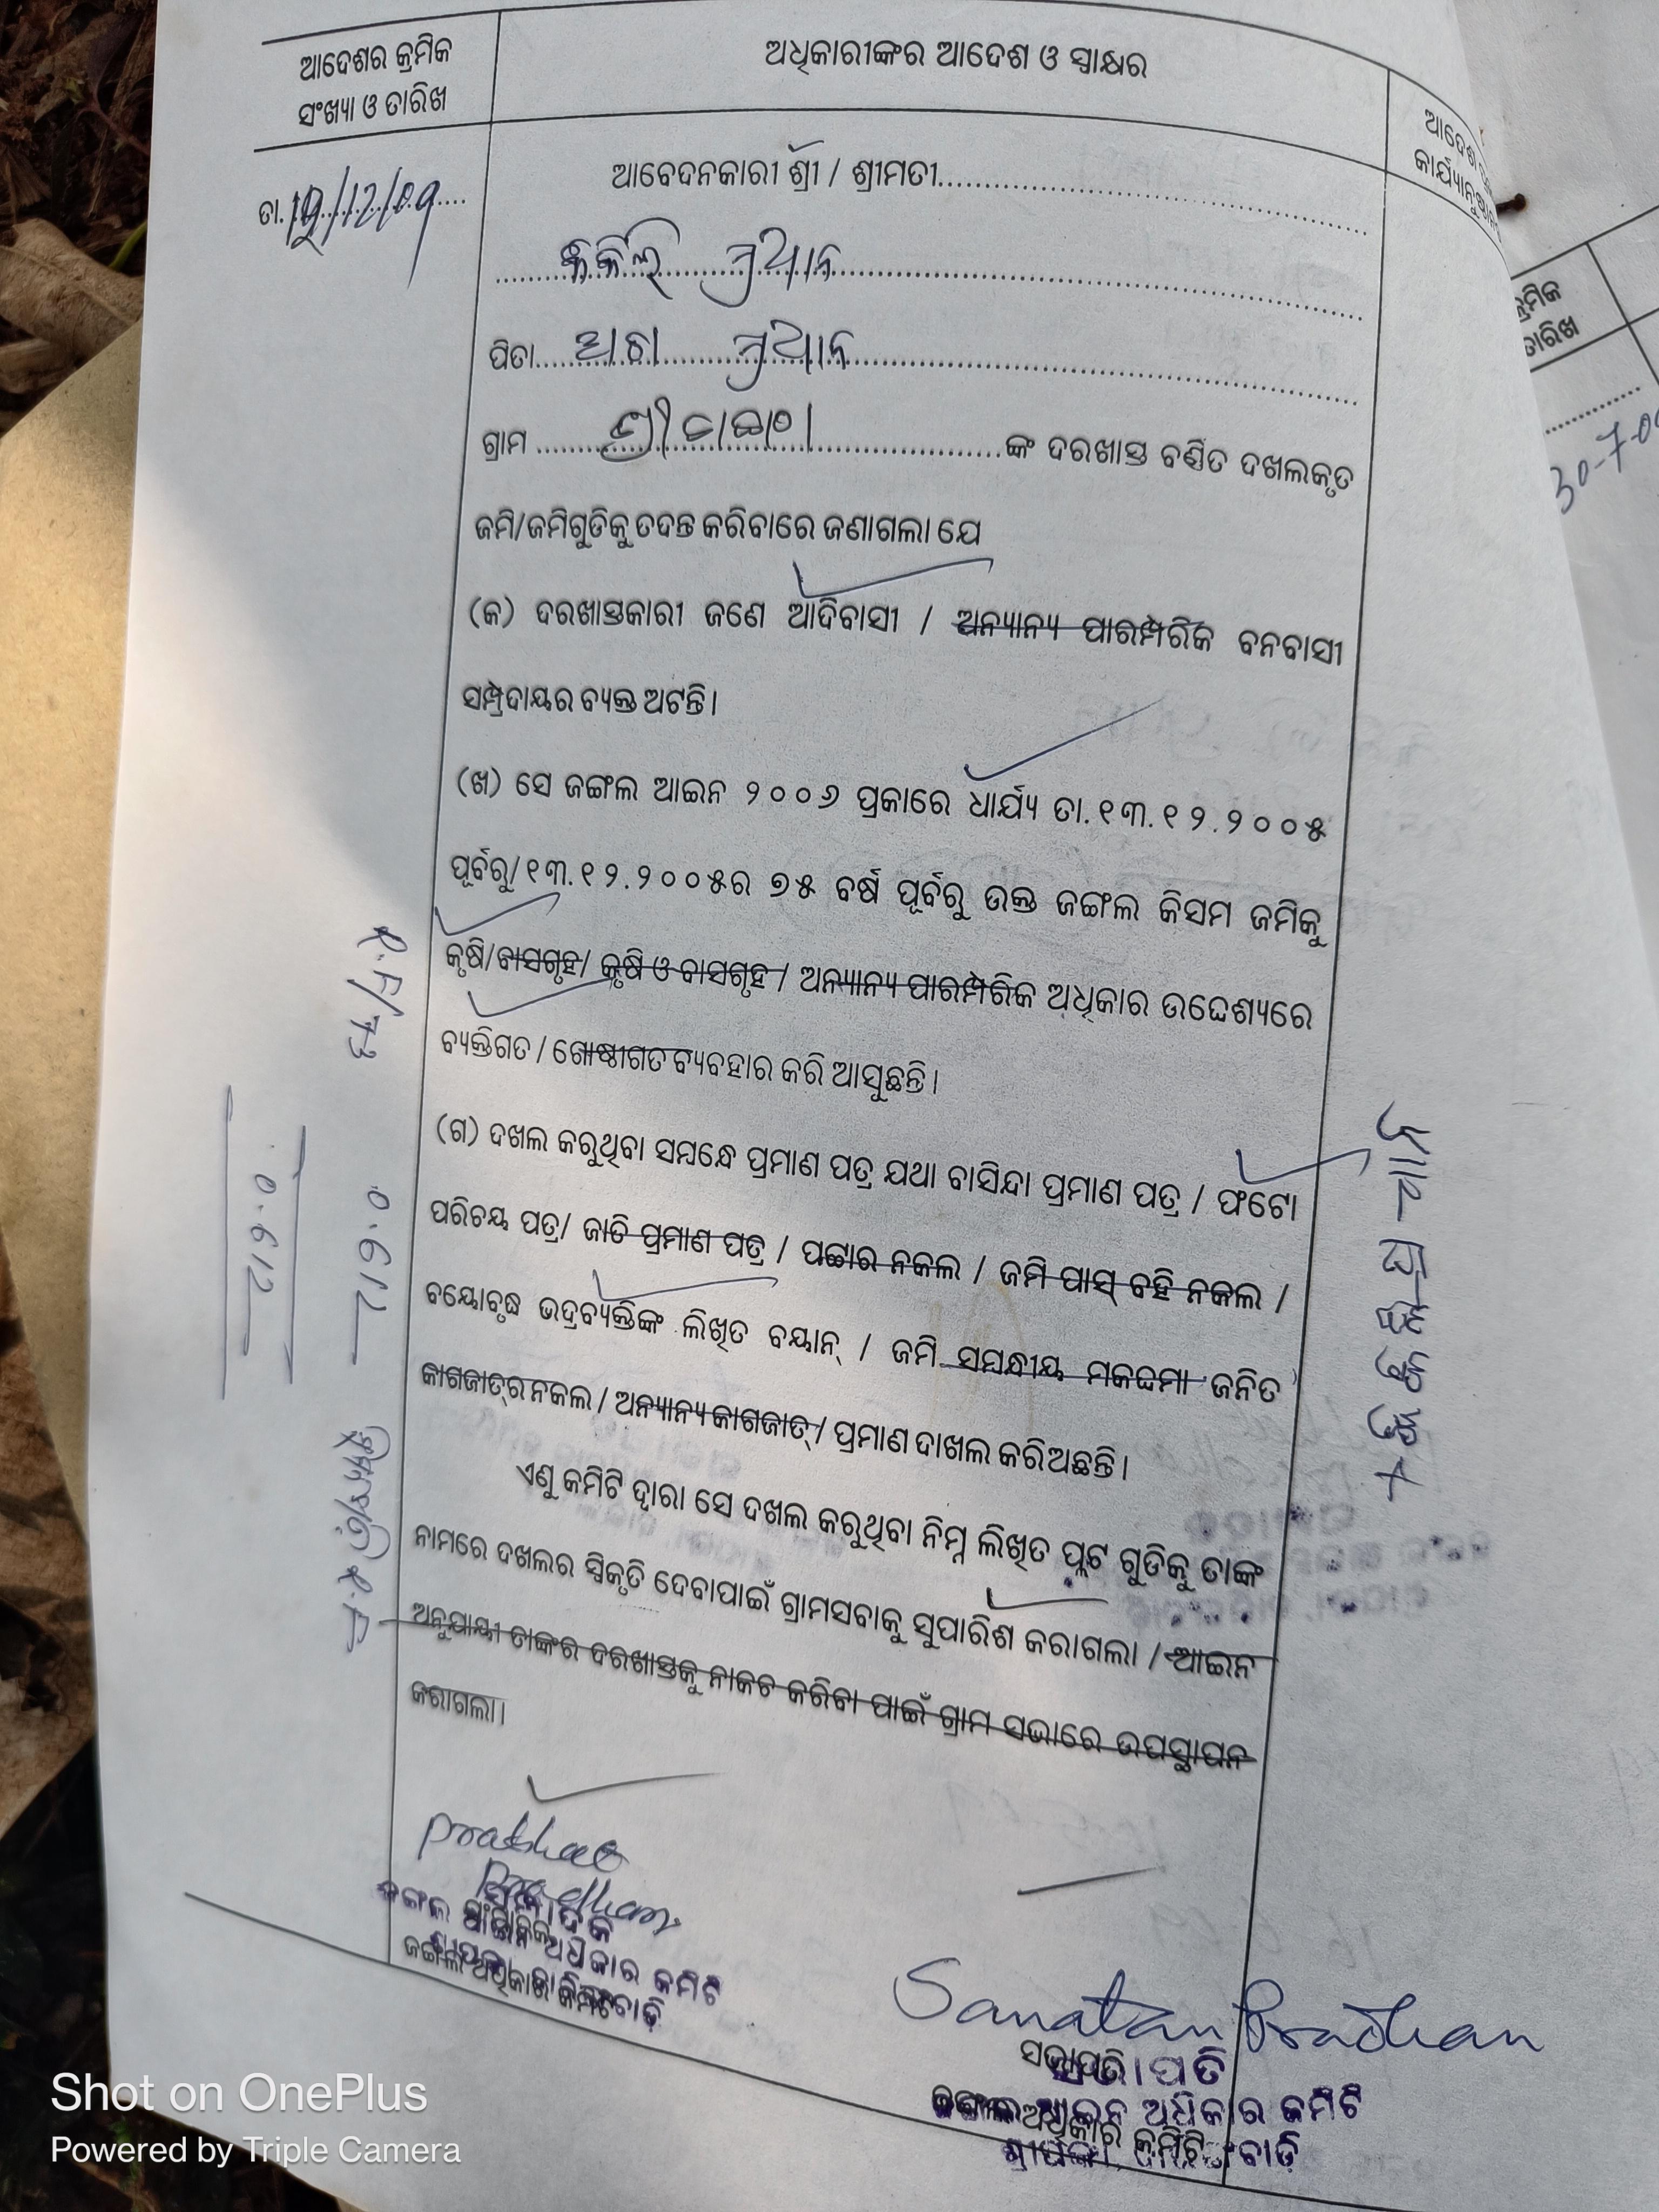 ଆଦେଶର କ୍ରମିକ
ସଂଖ୍ୟା ଓ ତାରିଖ
ଅଧିକାରୀଙ୍କର ଆଦେଶ ଓ ସ୍ୱାକ୍ଷର
ଆଦେଶ
ତା. /12/09
ଆବେଦନକାରୀ ଶ୍ରୀ / ଶ୍ରୀମତୀ
ପ୍ରଧାନ
ପିତା ପ୍ରଧାନ
ଗ୍ରାମ ଙ୍କ ଦରଖାସ୍ତ ବର୍ଣ୍ଣିତ ଦଖଲକୃତ
ଜମି/ଜମିଗୁଡିକୁ ତଦନ୍ତ କରିବାରେ ଜଣାଗଲା ଯେ
(କ) ଦରଖାସ୍ତକାରୀ ଜଣେ ଆଦିବାସୀ / ଅନ୍ୟାନ୍ୟ ପାରମ୍ପରିକ ବନବାସୀ
ସମ୍ପ୍ରଦାୟର ବ୍ୟକ୍ତ ଅଟନ୍ତି।
(ଖ) ସେ ଜଙ୍ଗଲ ଆଇନ ୨୦୦୬ ପ୍ରକାରେ ଧାର୍ଯ୍ୟ ତା.୧୩.୧୨.୨୦୦୫
ପୂର୍ବରୁ/୧୩.୧୨.୨୦୦୫ର ୭୫ ବର୍ଷ ପୂର୍ବରୁ ଉକ୍ତ ଜଙ୍ଗଲ କିସମ ଜମିକୁ
କୃଷି/ବାସଗୃହ/ କୃଷି ଓ ବାସଗୃହ / ଅନ୍ୟାନ୍ୟ ପାରମ୍ପରିକ ଅଧିକାର ଉଦ୍ଦେଶ୍ୟରେ
ବ୍ୟକ୍ତିଗତ / ଗୋଷ୍ଠୀଗତ ବ୍ୟବହାର କରି ଆସୁଛନ୍ତି।
(ଗ) ଦଖଲ କରୁଥିବା ସମ୍ବନ୍ଧେ ପ୍ରମାଣ ପତ୍ର ଯଥା ବାସିନ୍ଦା ପ୍ରମାଣ ପତ୍ର / ଫଟୋ
ପରିଚୟ ପତ୍ର/ ଜାତି ପ୍ରମାଣ ପତ୍ର / ପଟ୍ଟାର ନକଲ / ଜମି ପାସ୍ ବହି ନକଲ /
ବୟୋବୃଦ୍ଧ ଭଦ୍ରବ୍ୟକ୍ତିଙ୍କ ଲିଖିତ ବୟାନ୍ / ଜମି ସମ୍ବନ୍ଧୀୟ ମକଦ୍ଦମା ଜନିତ
କାଗଜାତ୍‌ର ନକଲ / ଅନ୍ୟାନ୍ୟ କାଗଜାତ୍ / ପ୍ରମାଣ ଦାଖଲ କରିଅଛନ୍ତି।
ଏଣୁ କମିଟି ଦ୍ୱାରା ସେ ଦଖଲ କରୁଥିବା ନିମ୍ନ ଲିଖିତ ପ୍ଲଟ ଗୁଡିକୁ ତାଙ୍କ
ନାମରେ ଦଖଲର ସ୍ୱିକୃତି ଦେବାପାଇଁ ଗ୍ରାମସବାକୁ ସୁପାରିଶ କରାଗଲା / ଆଇନ
ଅନୁଯାୟୀ ତାଙ୍କର ଦରଖାସ୍ତକୁ ନାକଚ କରିବା ପାଇଁ ଗ୍ରାମ ସଭାରେ ଉପସ୍ଥାପନ
କରାଗଲା।
R.F/73
0.612
0.612
R.F.
Pradhan
Sanatan Pradhan
ସଭାପତି
ଜଙ୍ଗଲ ଅଧିକାର କମିଟି
କ୍ରମିକ
ତାରିଖ
30-7-0
Shot on OnePlus
Powered by Triple Camera